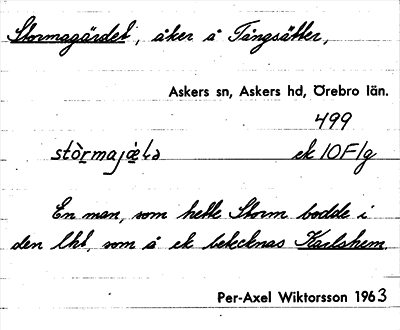 Stormagärdet, åker å Tångsätter,
Askers sn, Askers hd, Örebro län.
499
stòrmajæ̀ɭə ek 10F1g
En man, som hette Storm bodde i
den lht, som å ek betecknas Karlshem.
Per-Axel Wiktorsson 1963